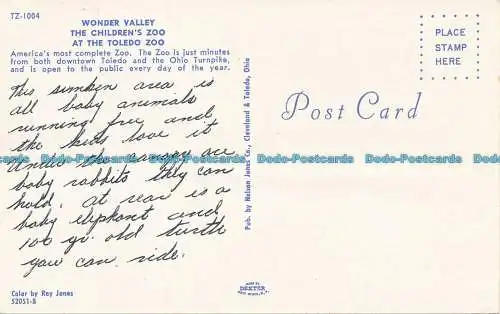 TZ-1004
WONDER VALLEY
THE CHILDREN'S ZOO
AT THE TOLEDO ZOO
America's most complete Zoo. The Zoo is just minutes
from both downtown Toledo and the Ohio Turnpike,
and is open to the public every day of the year.
This sunken area is
all baby animals
running free and
the kids love it
Under the canopy are
baby rabbits they can
hold. at rear is a
baby elephant and
100 yr. old turtle
you can ride.
Color by Ray Jones
52051-B
Pub. by Nelson Jones Co., Cleveland & Toledo, Ohio
MADE BY
DEXTER
WEST NYACK, N.Y.
Post Card
PLACE
STAMP
HERE
Dodo-Postcards Dodo-Postcards Dodo-Postcards Dodo-Postcards Dodo-Postcards